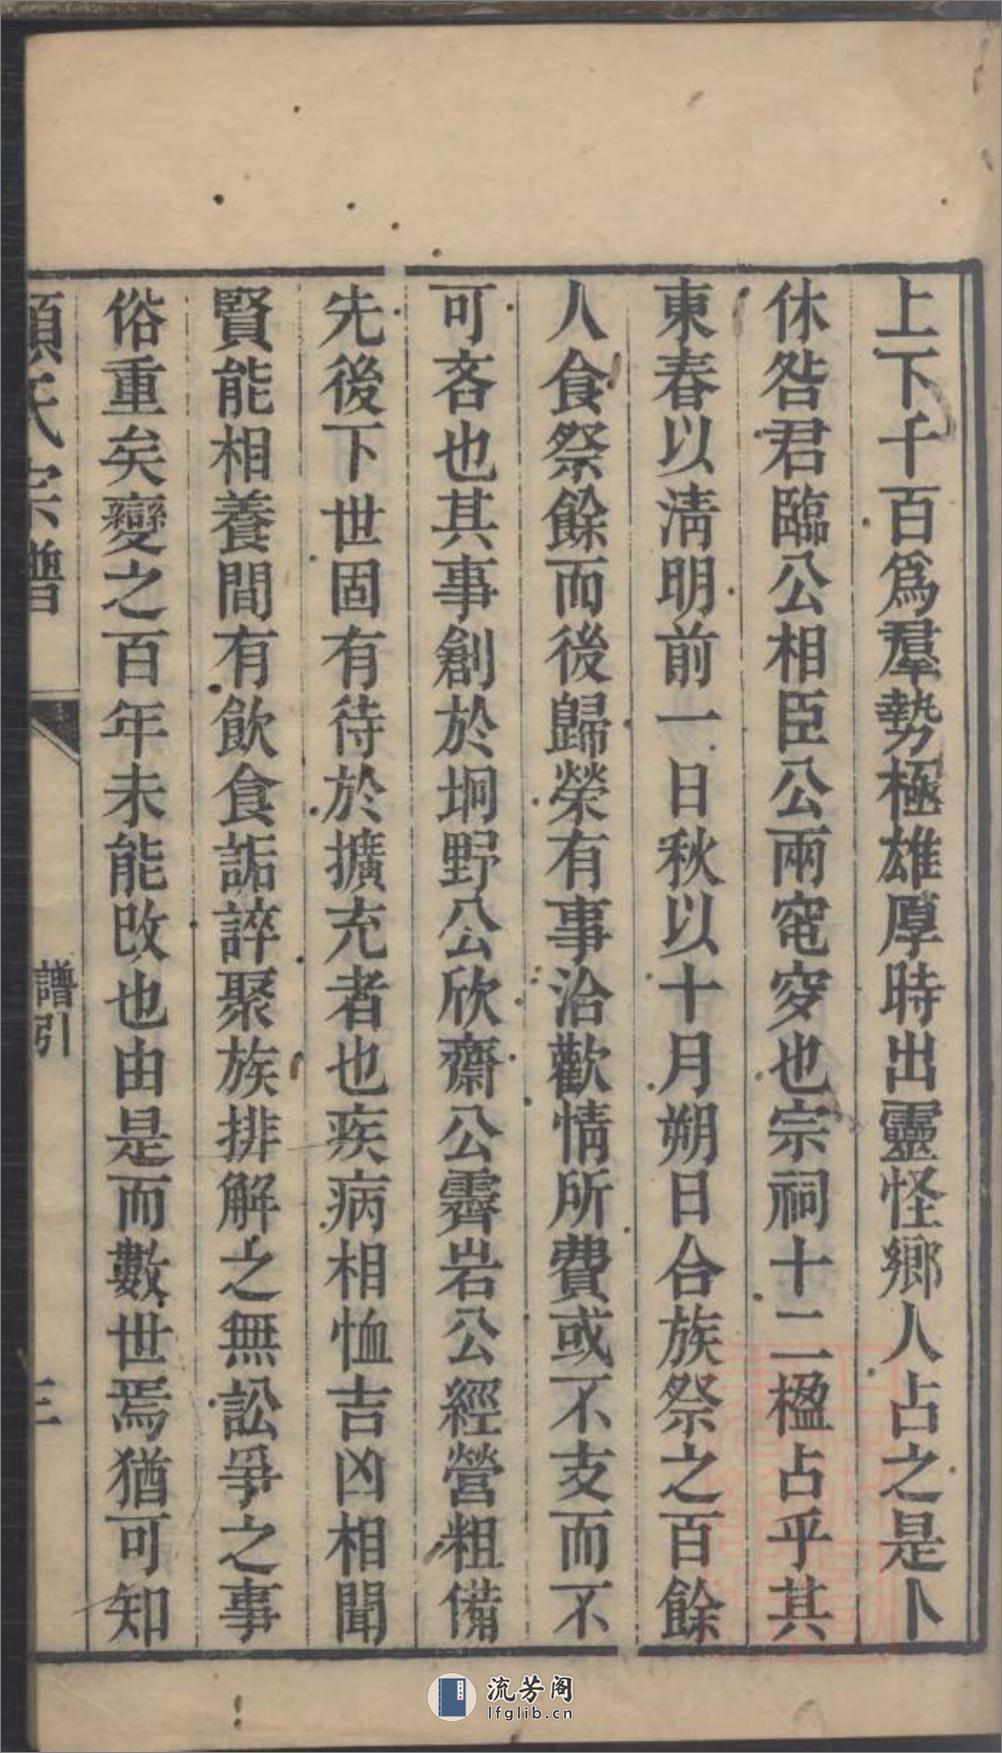 上下千百爲羣勢極雄厚時出靈怪鄉人占之是卜
休咎君臨公相臣公兩窀穸也宗祠十二楹占乎其
東春以淸明前一日秋以十月朔日合族祭之百餘
人食祭餘而後歸榮有事洽歡情所費或不支而不
可吝也其事創於坰野公欣齋公霽岩公經營粗備
先後下世固有待於擴充者也疾病相恤吉凶相聞
賢能相養間有飮食詬誶聚族排解之無訟爭之事
俗重矣變之百年未能改也由是而數世焉猶可知
氏宗譜
譜引
三
流芳阁
lfglib.cn